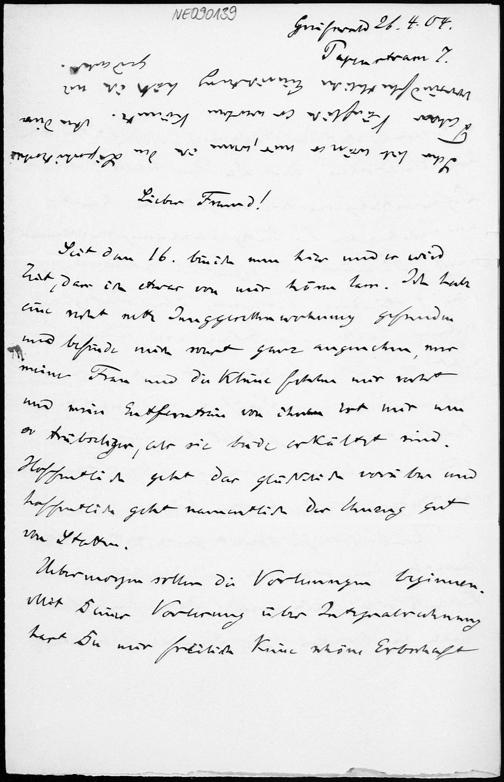 NE090139
Greifswald 26.4.04.
Papenstrasse 7.
Lieber Freund!
Seit dem 16. bin ich nun hier und es wird
Zeit, dass ich etwas von mir hören lasse. Ich habe
eine recht nette Junggesellenwohnung gefunden
und befinde mich sonst ganz angenehm, nur
meine Frau und die Kleine fehlen mir recht
und mein Entferntsein von ihnen ist mir um
so trübseliger, als sie beide erkältet sind.
Hoffentlich geht das glücklich vorüber und
hoffentlich geht namentlich der Umzug gut
von Statten.
Uebermorgen sollen die Vorlesungen beginnen.
Mit Deiner Vorlesung über Integralrechnung
hast Du mir freilich keine schöne Erbschaft